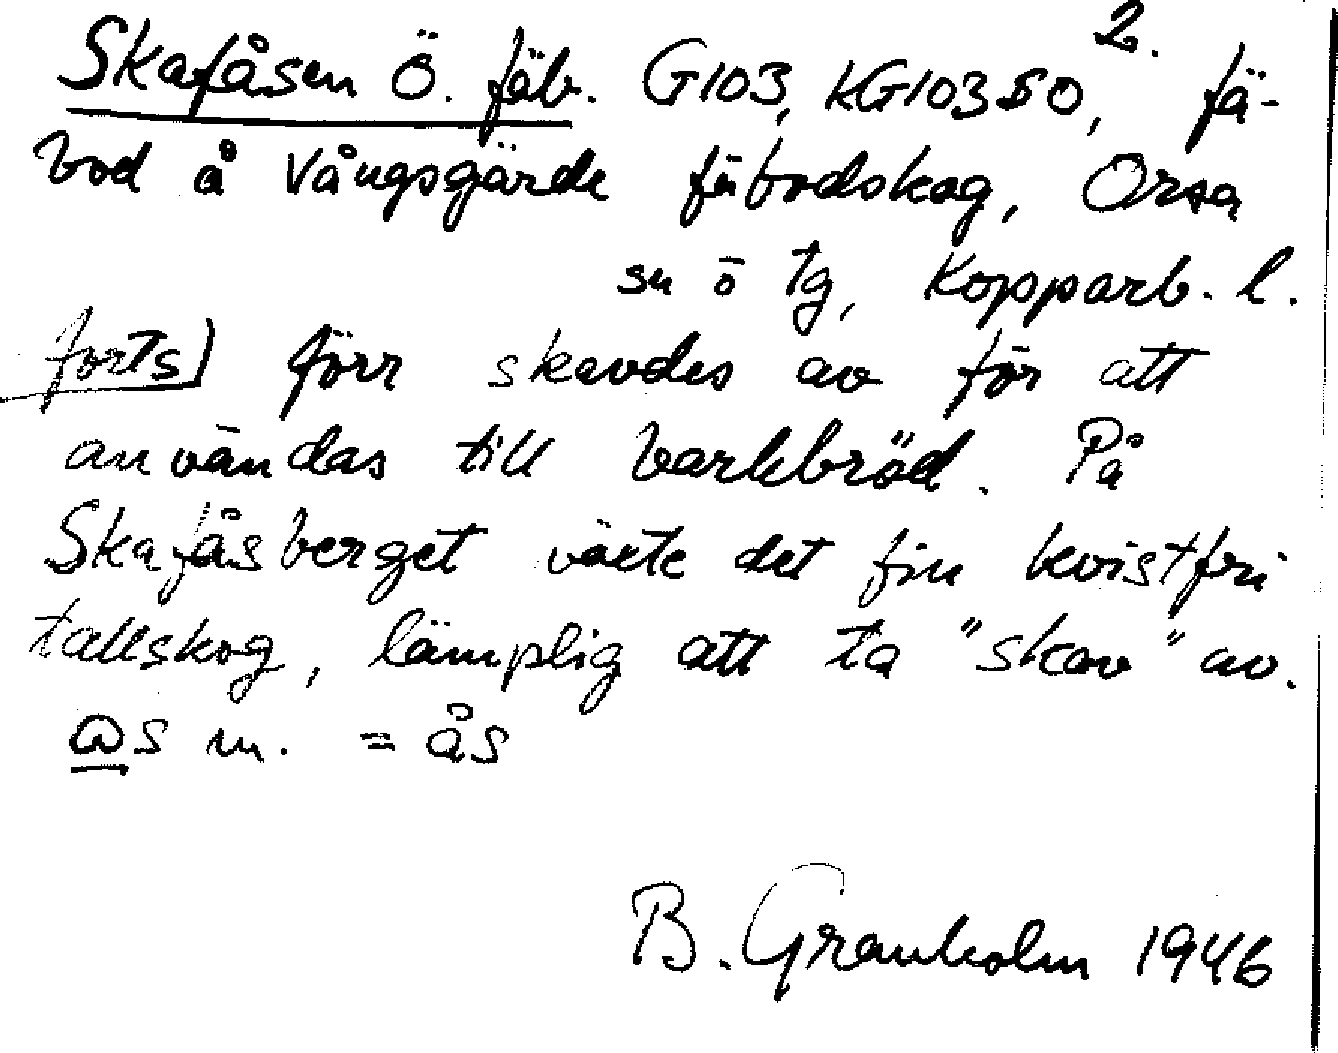 2.
Skafåsen Ö. fäb. G103, KG103SO, fä-
bod å Vångsgärde fäbodskog, Orsa
sn ö tg, Kopparb. l.
forts) förr skavdes av för att
användas till barkbröd. På
Skafåsberget växte det fin kvistfri
tallskog, lämplig att ta "skav" av.
ɷs m. = ås
B. Granholm 1946